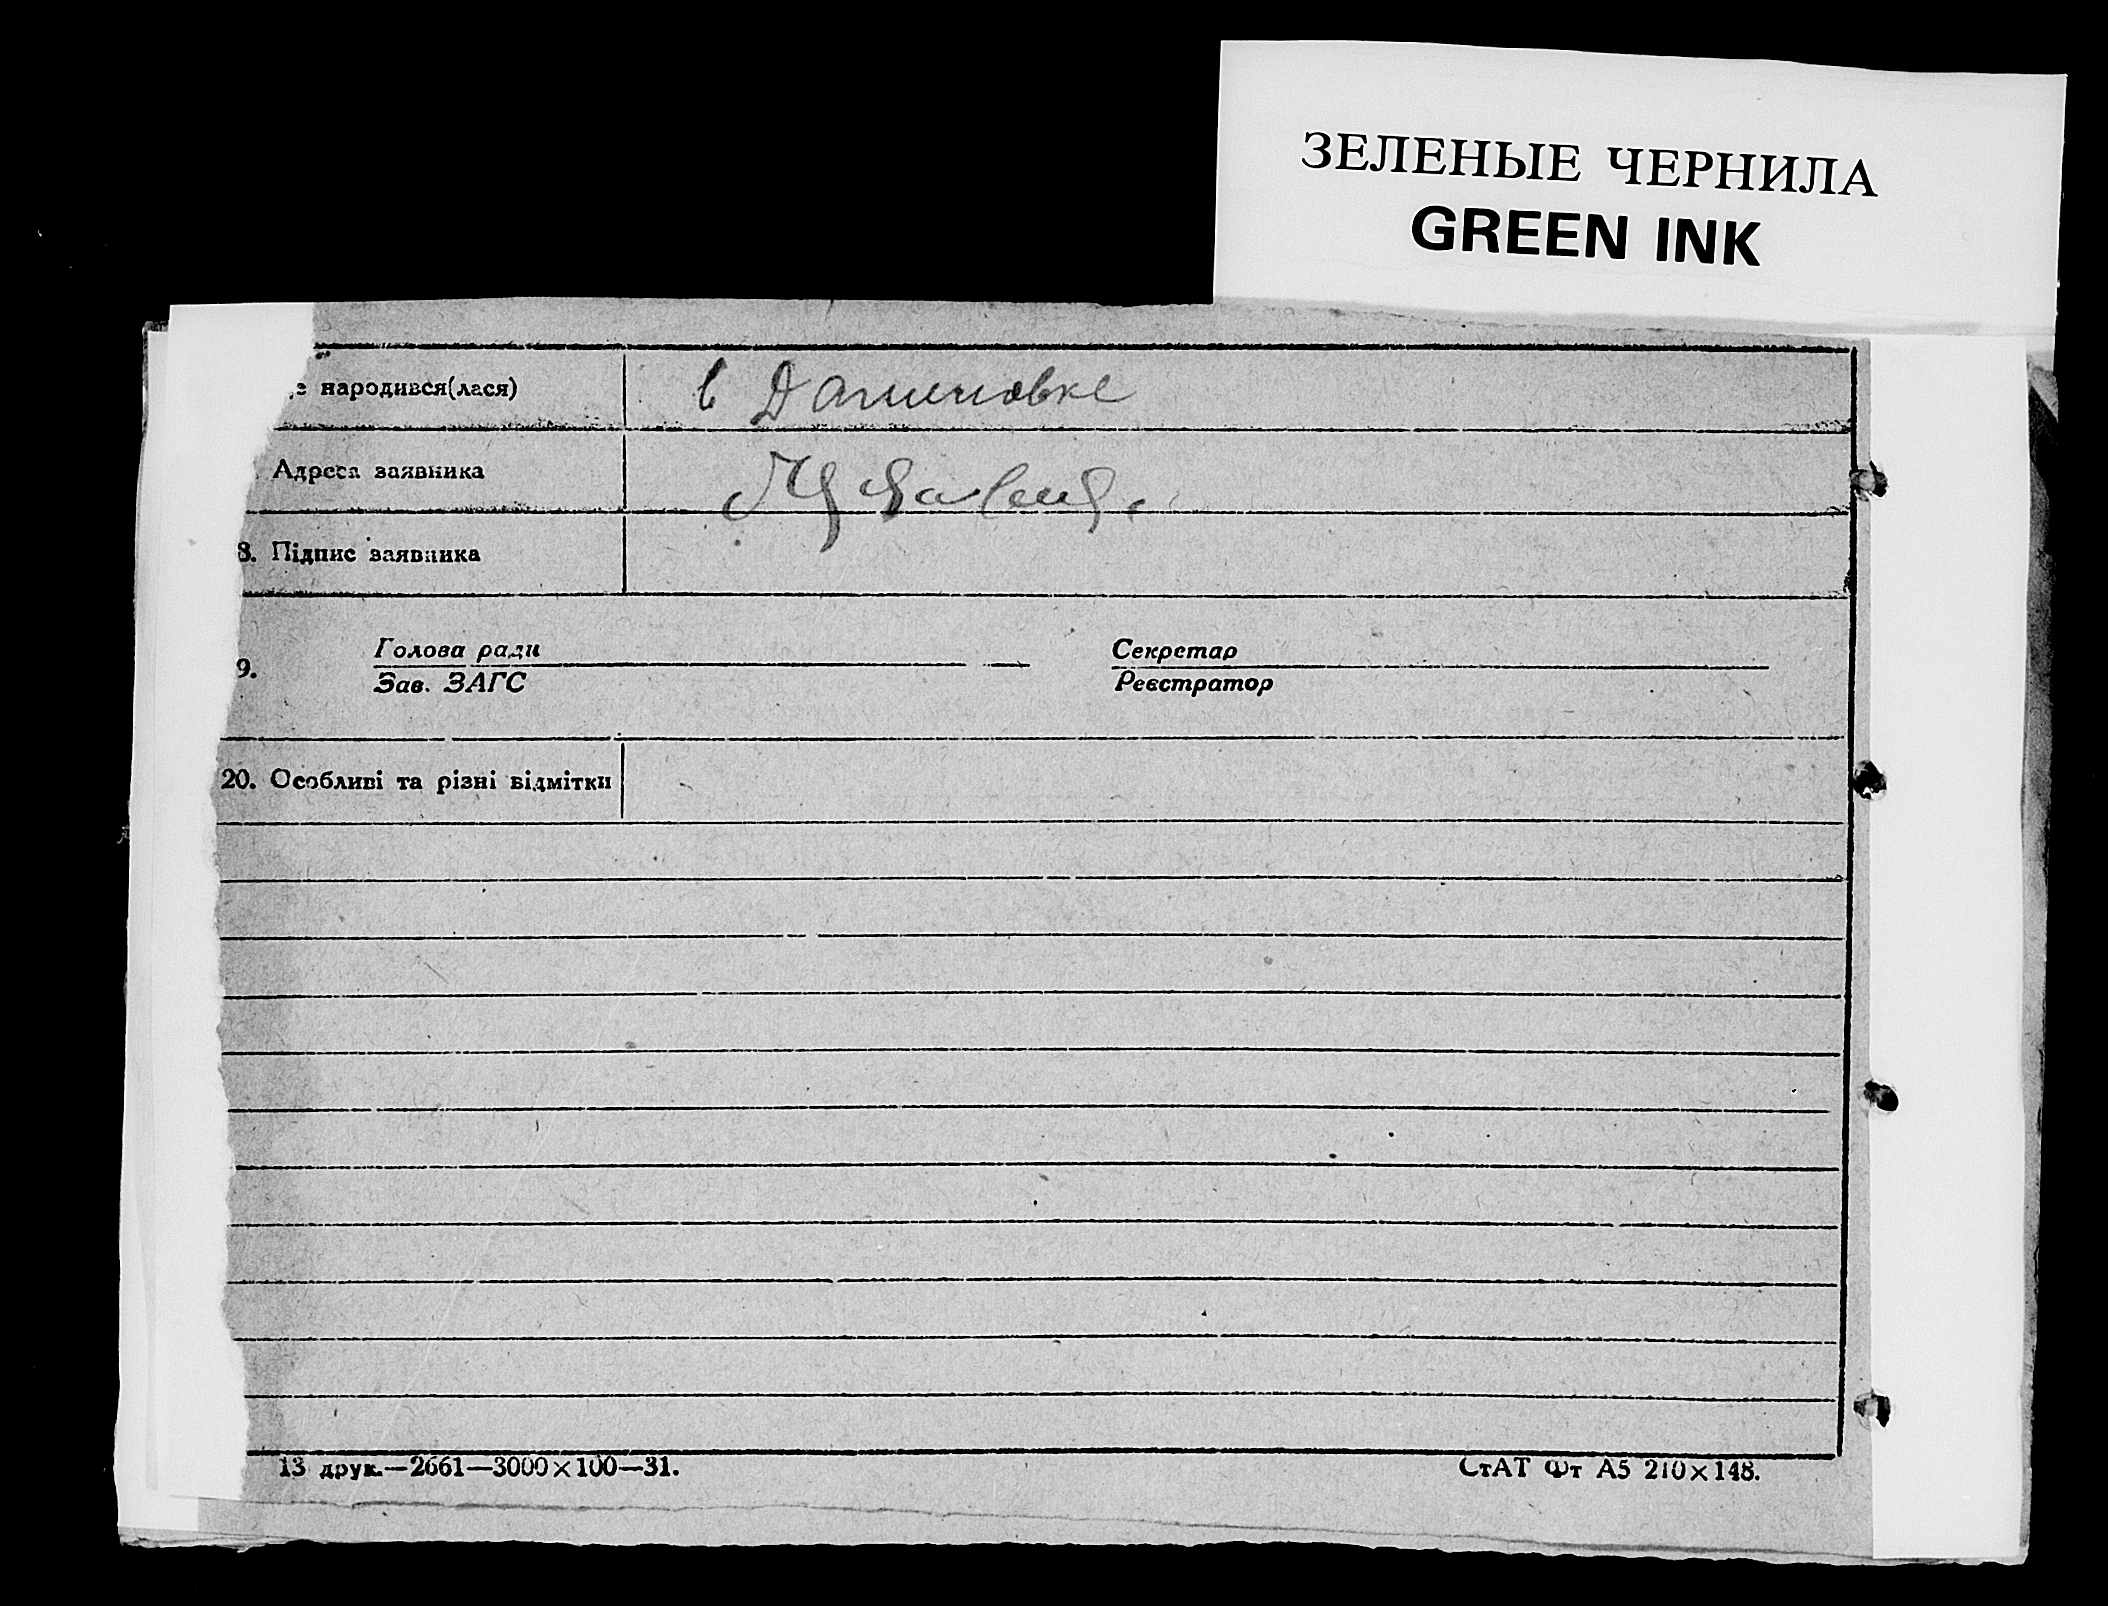 ЗЕЛЕНЫЕ ЧЕРНИЛА
GREEN INK
народився(лася) в
Адреса заявника
8. Підпис заявника
9. Голова ради
Зав. ЗАГС
Секретар
Реєстратор
20. Особливі та різні відмітки
13 друк.—2661—3000×100—31.
СтАТ Фт А5 210×148.